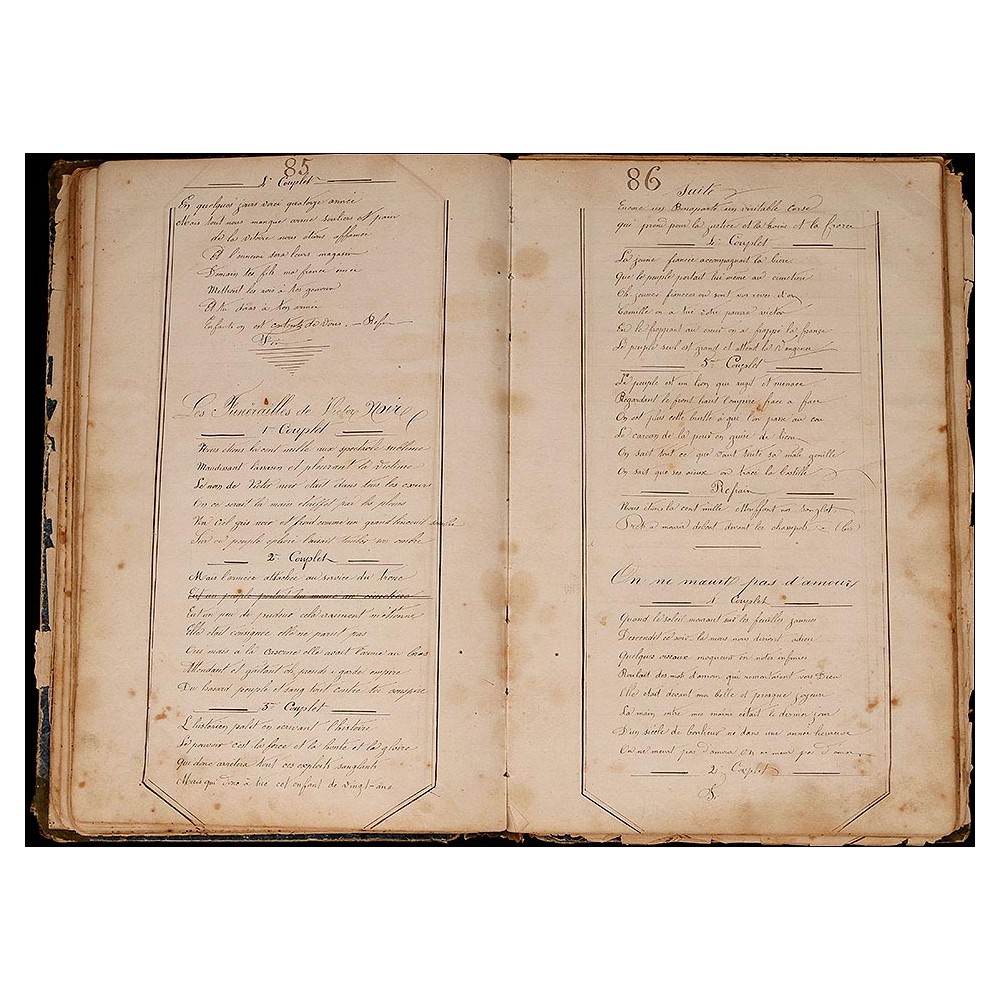 85
4e Couplet
En quelques jours voici quatorze année
Mais tout nous manque arme souliers et pain
de la victoire nous étions affamés
Et l'ennemi sera leurs magasin
Demain tes fils ma france
Mettront les rois à tes genoux
Et tu diras à ton armée
Enfants on est contents de vous. Refr
Les Funérailles de Victor Noir
1er Couplet
Nous étions là cent mille aux spectacle sublime
Maudissant l'assassin et pleurant la victime
Le nom de Victor noir était dans tous les cœurs
On ce serait la main étouffés par les pleurs
Un ciel gris noir et froid comme un grand linceuil sombre
Sur ce peuple éploré laissait tomber son ombre
2e Couplet
Mais l'armée attachée au service du trone
Eut un peu de pudeur cela vraiment m'étonne
Elle était consignée elle ne parut pas
Oui mais à la caserne elle avait l'arme au bras
Attendant et guettant de prendre garde empire
Du hasard peuple et sang tout contre toi conspire
3e Couplet
L'historien palit en ecrivant l'histoire
Le pouvoir c'est la force et la honte et la gloire
Qui donc arrêtera tout ces exploits sanglants
Mais qui donc à tué cet enfant de vingt-ans
86
Suite
Encore un Bonaparte un véritable corse
qui prend pour la justice et la haine et la force
4e Couplet
La jeune fiancée accompagnait la bière
Que le peuple portait lui même au cimetière
Oh jeunes fiancées ou sont vos rêves d'or
Famille on a tué votre pauvre victor
En le frappant au cœur on a frappé la france
Le peuple seul est grand et attend la vengeance
5me Couplet
Le peuple est un lion qui rugit et menace
Regardant le front haut l'empire face a face
On est plus cette bestle à que l'on passe au cou
Le carcan de la peur en guise de licou
On sait tout ce que vaut toute sa mâle guenille
On sait que ses aieux on tracé la Bastille
Refrain
Nous étions là cent mille étouffant nos sanglot
Prêt a mourir debout devant les (bis)
On ne meurt pas d'amour
1er Couplet
Quand le soleil mourant sur les feuilles jaunies
Descendit ce soir la mais nous dirent adieu
Quelques oiseaux moqueurs en notes infinies
Roulait des mots d'amour qui remontaient vers Dieu
Elle était devant moi belle et presque joyeuse
La main entre mes mains c'était le dernier jour
D'un siècle de bonheur ne dans une année heureuse
On ne meurt pas d'amour On ne meur pas d'amour
2e Couplet
S.